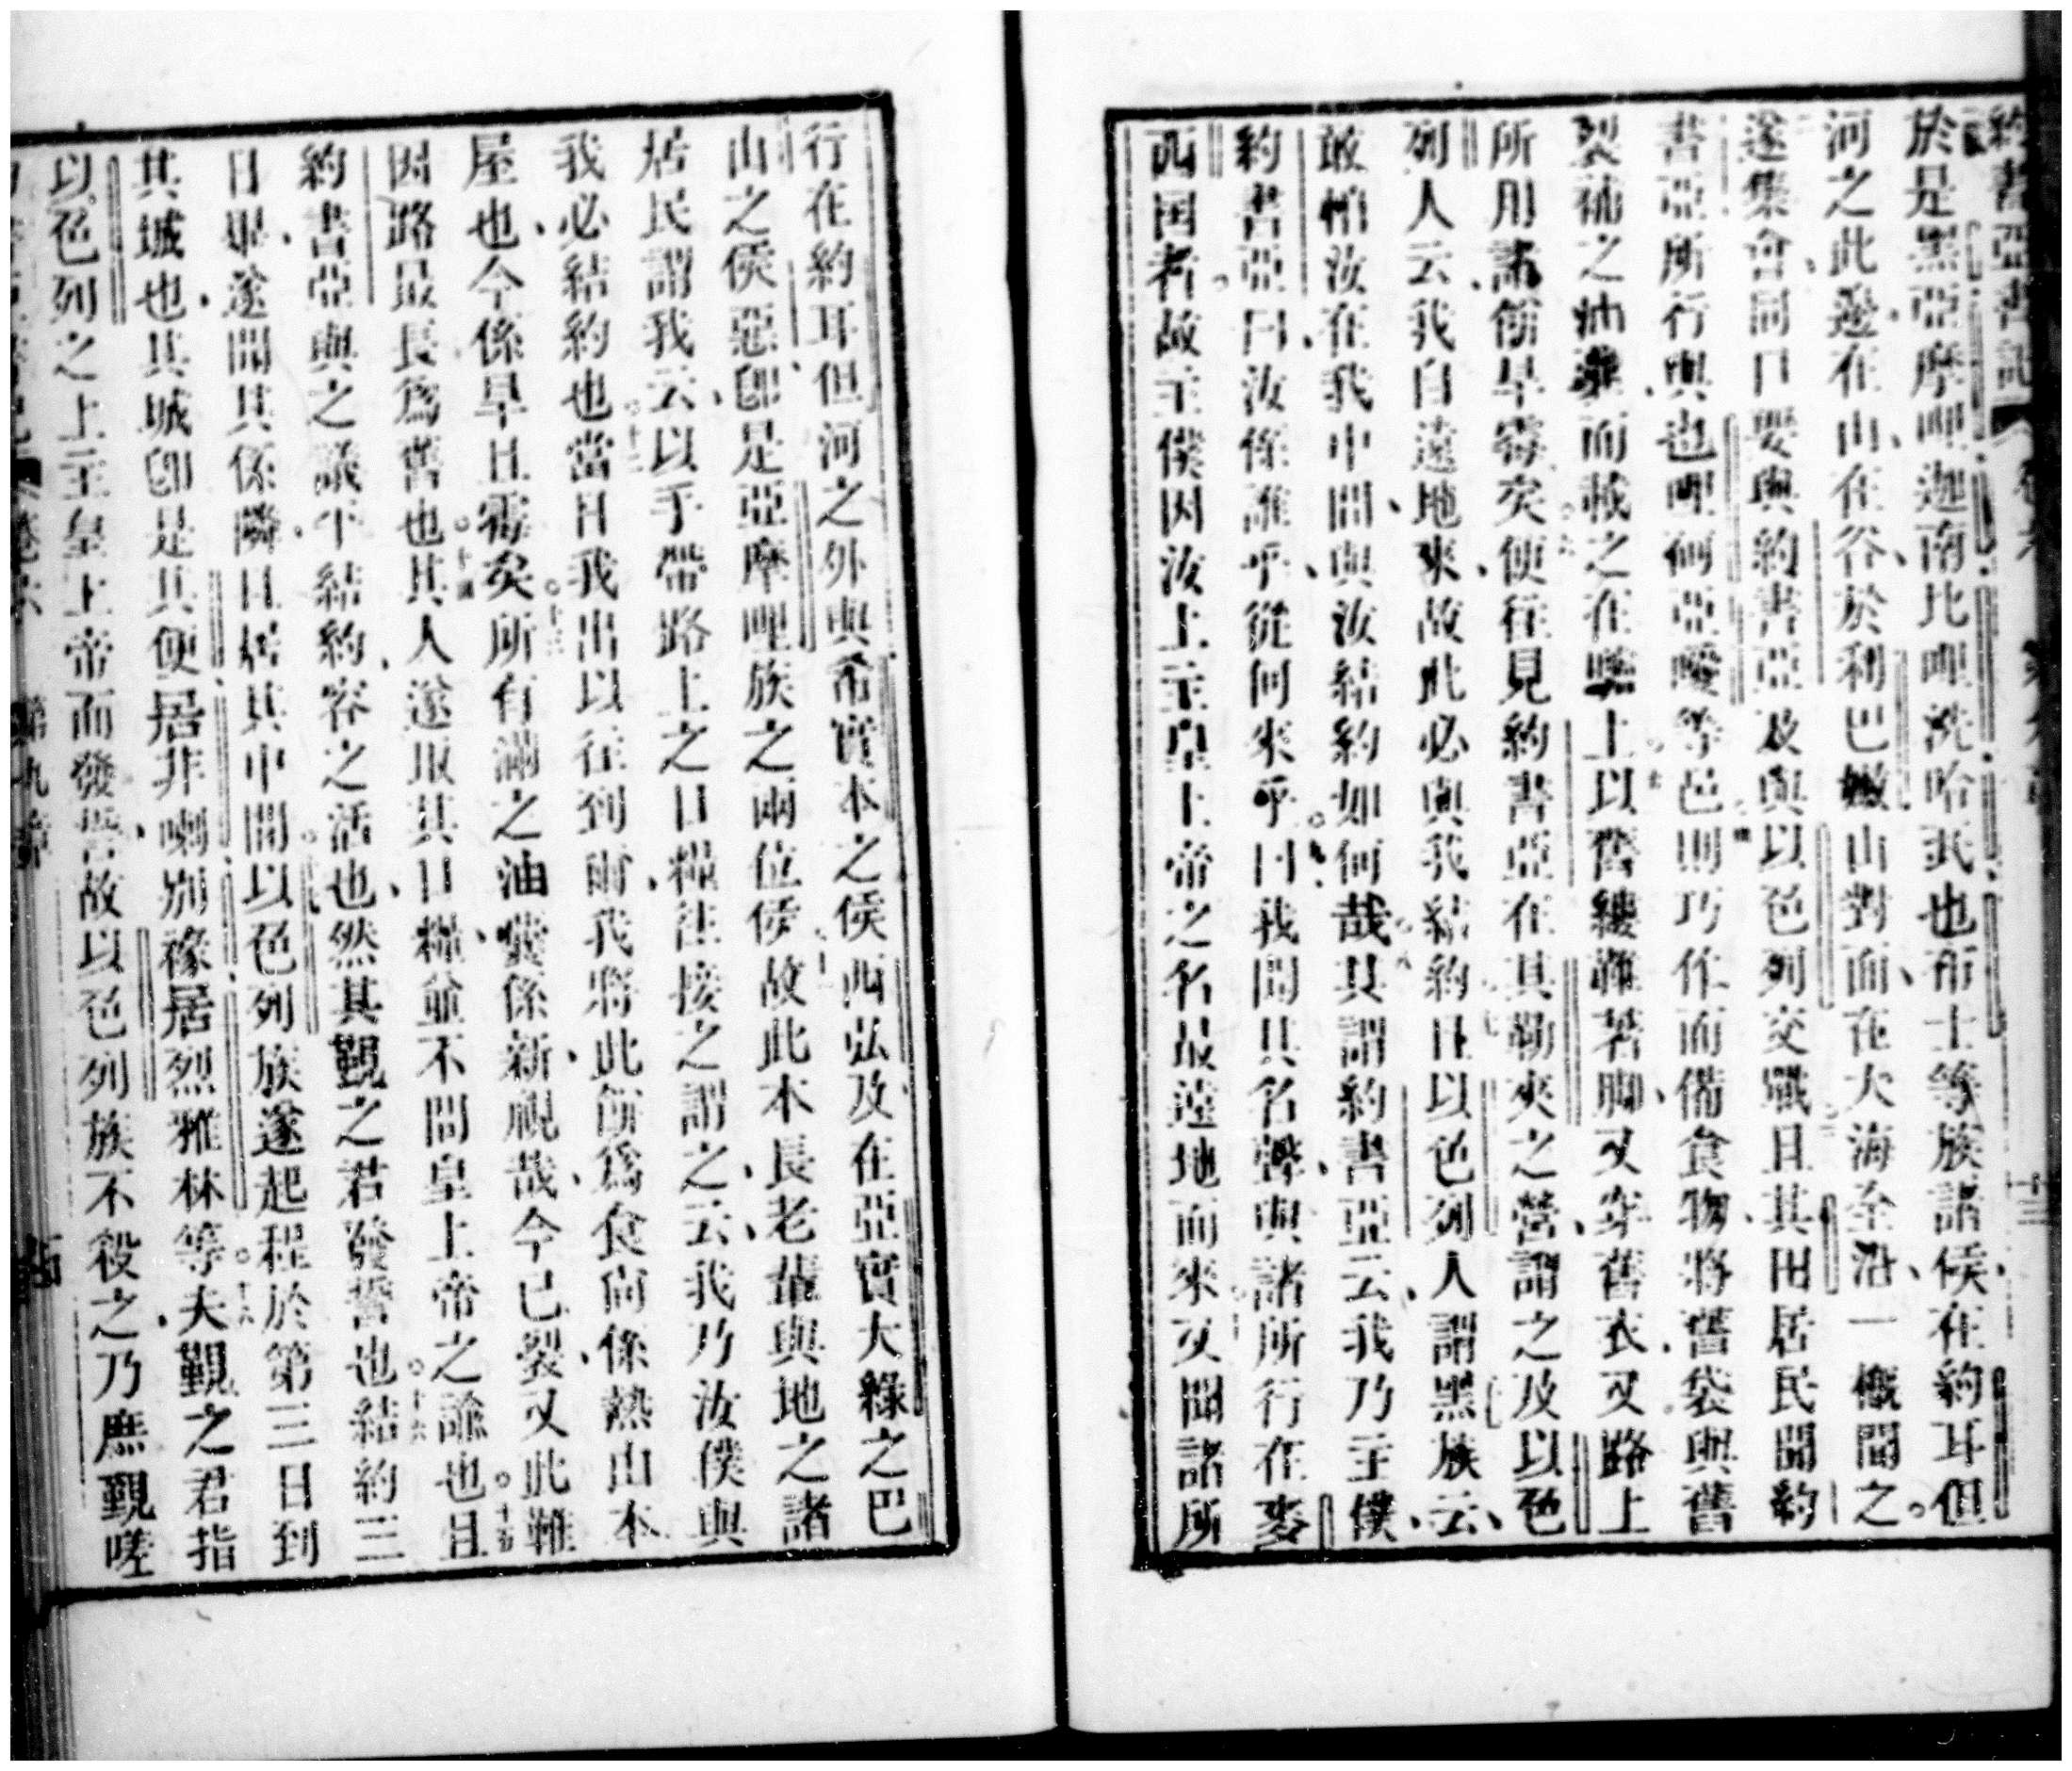 約書亞書記
於是黑亞摩哩迦南比哩洗哈武也布士等族諸侯在約耳但
河之此邊在山在谷於利巴嫩山對面在大海全沿一概聞之
遂集會同口要與約書亞及與以色列交戰且其田居民聞約
書亞所行與也哩何亞曖等邑則巧作而備食物將舊袋與舊
裂補之油囊而載之在驢上以舊縷鞋著脚又穿舊衣又路上
所用諸餅旱霉矣便往見約書亞在其勒夾之營謂之及以色
列人云我自遠地來故此必與我結約且以色列人謂黑族云
敢怕汝在我中間與汝結約如何哉其謂約書亞云我乃主僕
約書亞曰汝係誰乎從何來乎曰我聞其名聲與諸所行在麥
西國者故主僕因汝上主皇上帝之名最遠地而來又聞諸所
行在約耳但河之外與希實本之侯西弘及在亞實大綠之巴
山之侯惡即是亞摩哩族之兩位侯故此本長老輩與地之諸
居民謂我云以手帶路上之日糧往接之謂之云我乃汝僕與
我必結約也當日我出以往到爾我將此餅爲食尚係熱由本
屋也今係旱且霉矣所有滿之油囊係新視哉今已裂又此鞋
因路最長爲舊也其人遂取其日糧並不問皇上帝之諭也且
約書亞與之議平結約容之活也然其覲之君發誓也結約三
日畢遂聞其係隣且居其中間以色列族遂起程於第三日到
其城也其城即是其便居非喇別祿居烈雅林等夫覲之君指
以色列之上主皇上帝而發誓故以色列族不役之乃庶覲嗟
第九章